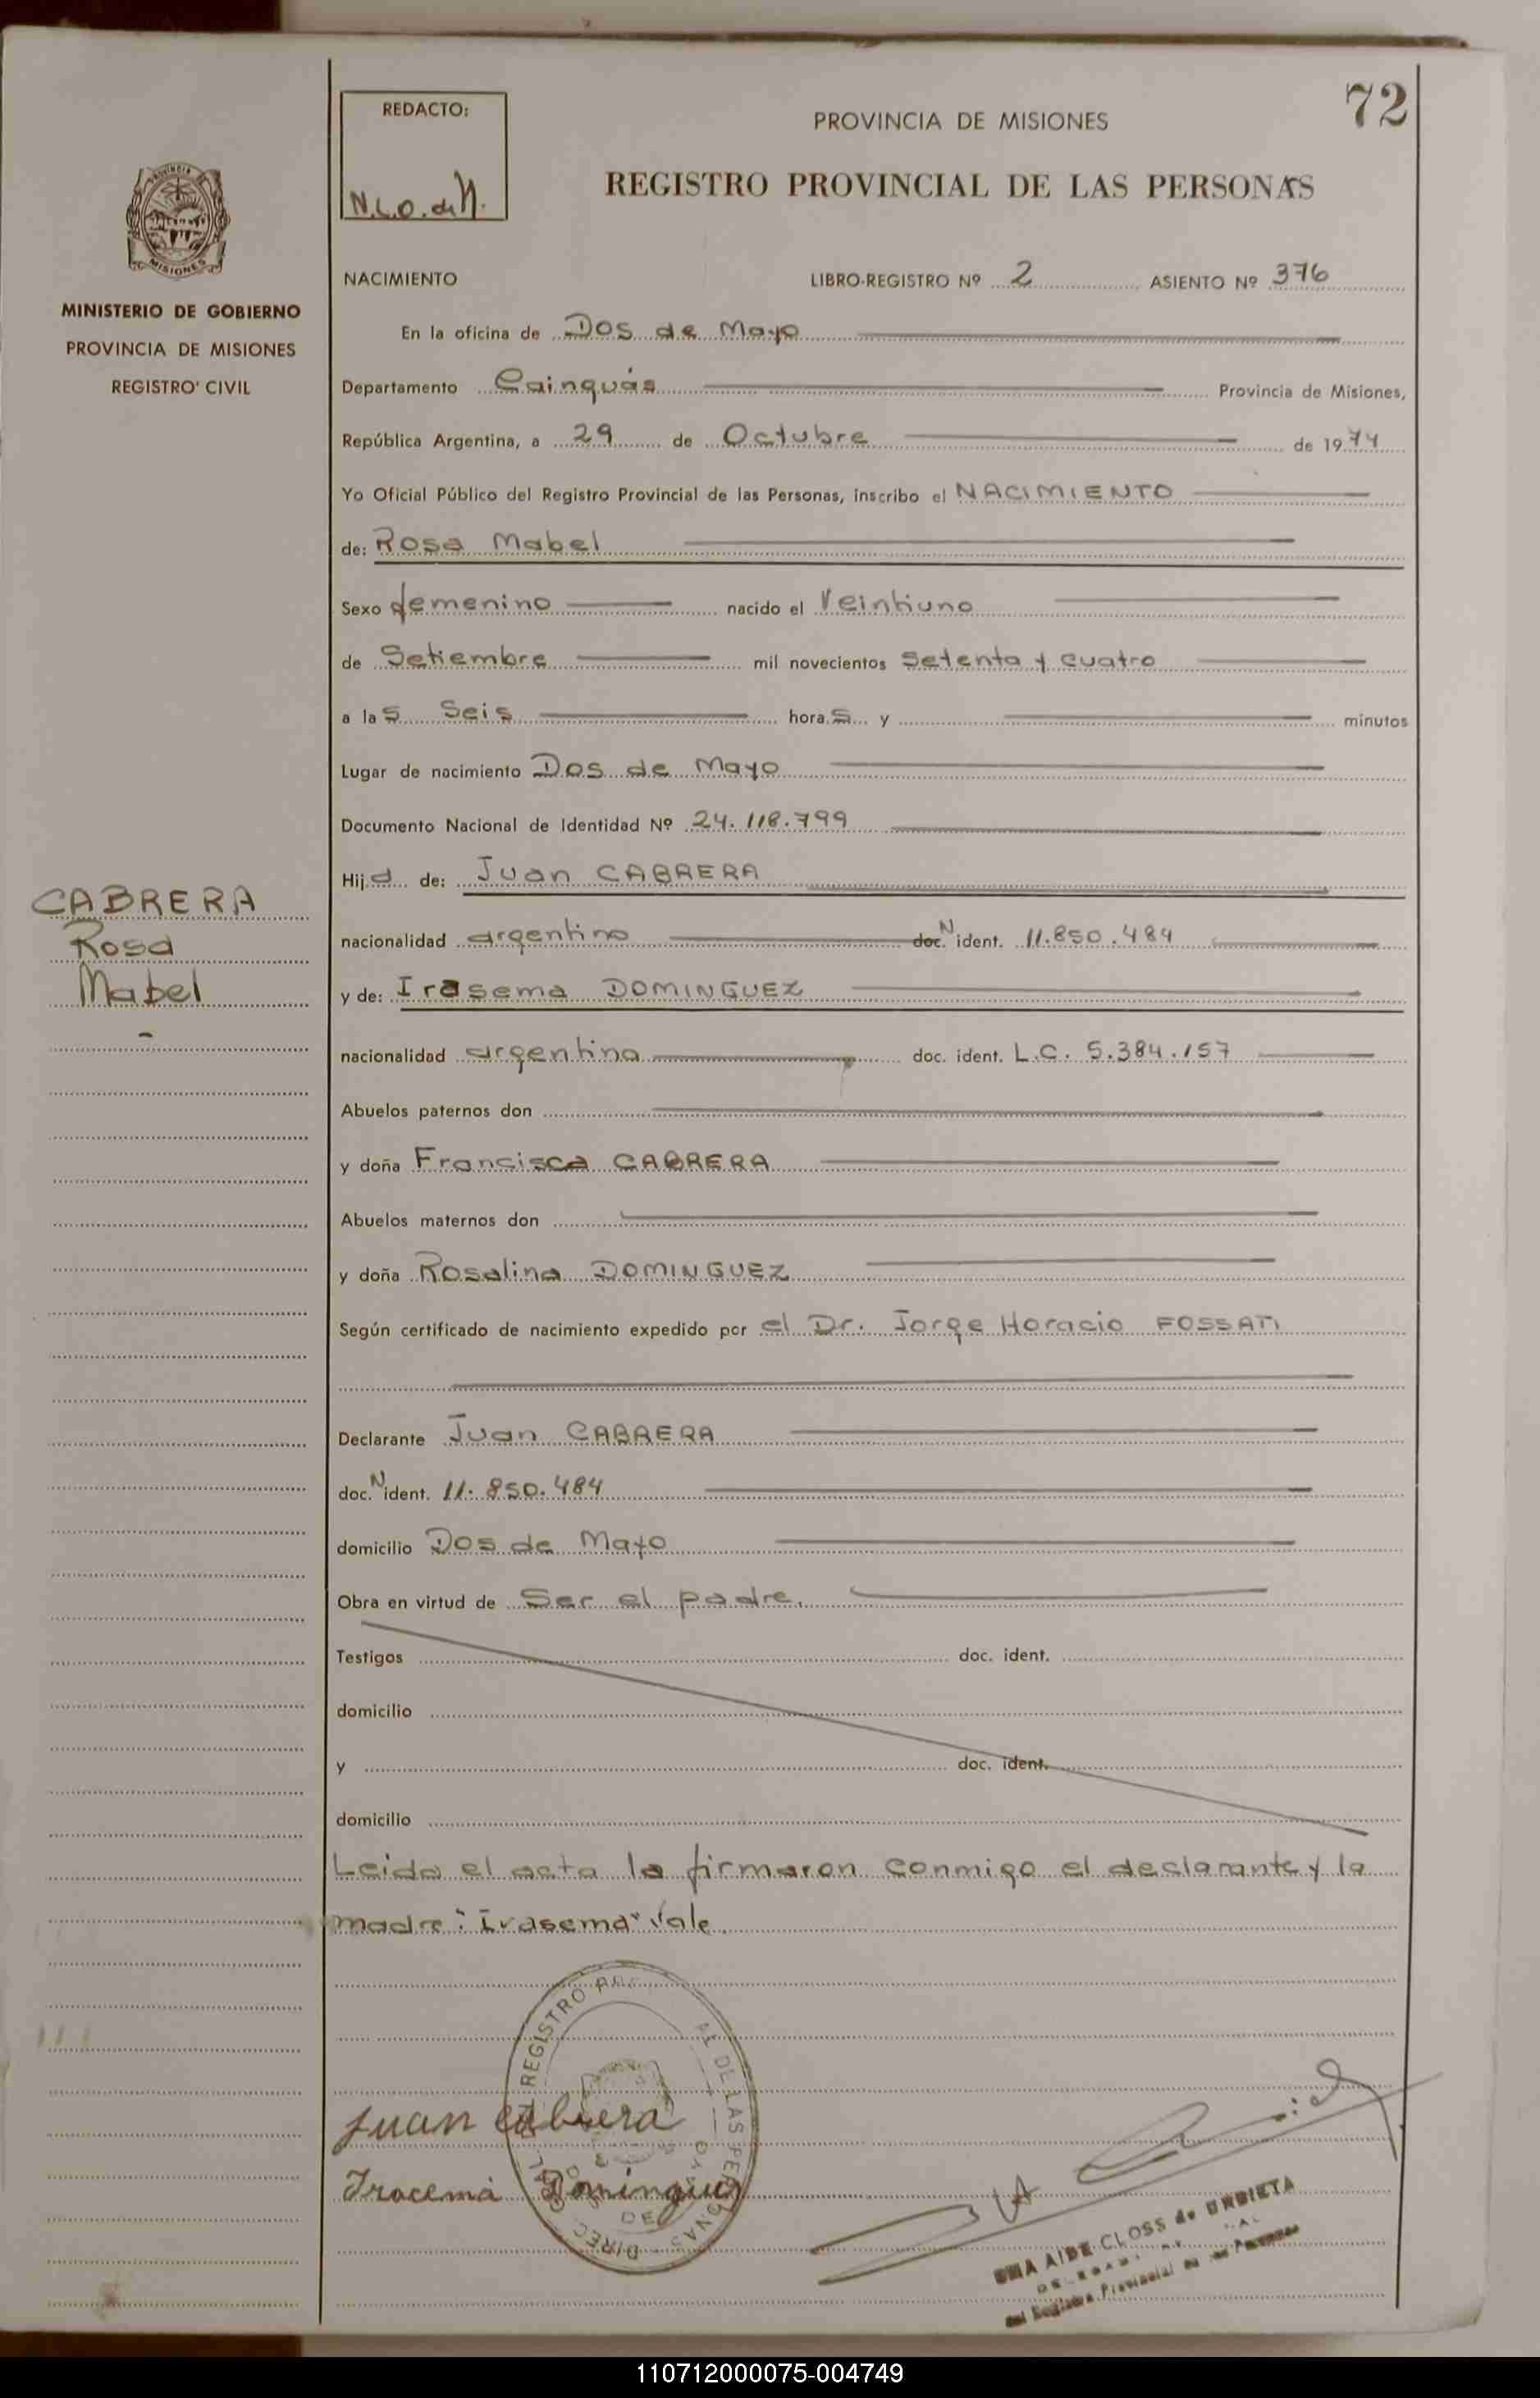 72
REDACTO:
N.L.O. de N.
PROVINCIA DE MISIONES
REGISTRO PROVINCIAL DE LAS PERSONAS
PROVINCIA DE
MISIONES
MINISTERIO DE GOBIERNO
PROVINCIA DE MISIONES
REGISTRO CIVIL
NACIMIENTO LIBRO-REGISTRO Nº 2 ASIENTO Nº 376
En la oficina de Dos de Mayo
Departamento Cainguás Provincia de Misiones,
República Argentina, a 29 de Octubre de 1974
Yo Oficial Público del Registro Provincial de las Personas, inscribo el NACIMIENTO
de: Rosa Mabel
Sexo femenino nacido el Veintiuno
de Setiembre mil novecientos setenta y cuatro
a las Seis horas y minutos
Lugar de nacimiento Dos de Mayo
Documento Nacional de Identidad Nº 24.118.799
Hija de: Juan CABRERA
CABRERA
Rosa
Mabel
-
nacionalidad argentino doc. N ident. 11.850.484
y de: Irasema DOMINGUEZ
nacionalidad argentina doc. ident. L.C. 5.384.157
Abuelos paternos don
y doña Francisca CABRERA
Abuelos maternos don
y doña Rosalina DOMINGUEZ
Según certificado de nacimiento expedido por el Dr. Jorge Horacio FOSSATI
Declarante Juan CABRERA
doc. N ident. 11.850.484
domicilio Dos de Mayo
Obra en virtud de Ser el padre.
Testigos doc. ident.
domicilio
y doc. ident.
domicilio
Leida el acta la firmaron conmigo el declarante y la
madre: "Irasema" Vale
REGISTRO DE LAS PERSONAS
DIREC.
Juan Cabrera
Iracema Dominguez
AIDE CLOSS de URBIETA
del Registro Provincial de las Personas
110712000075-004749